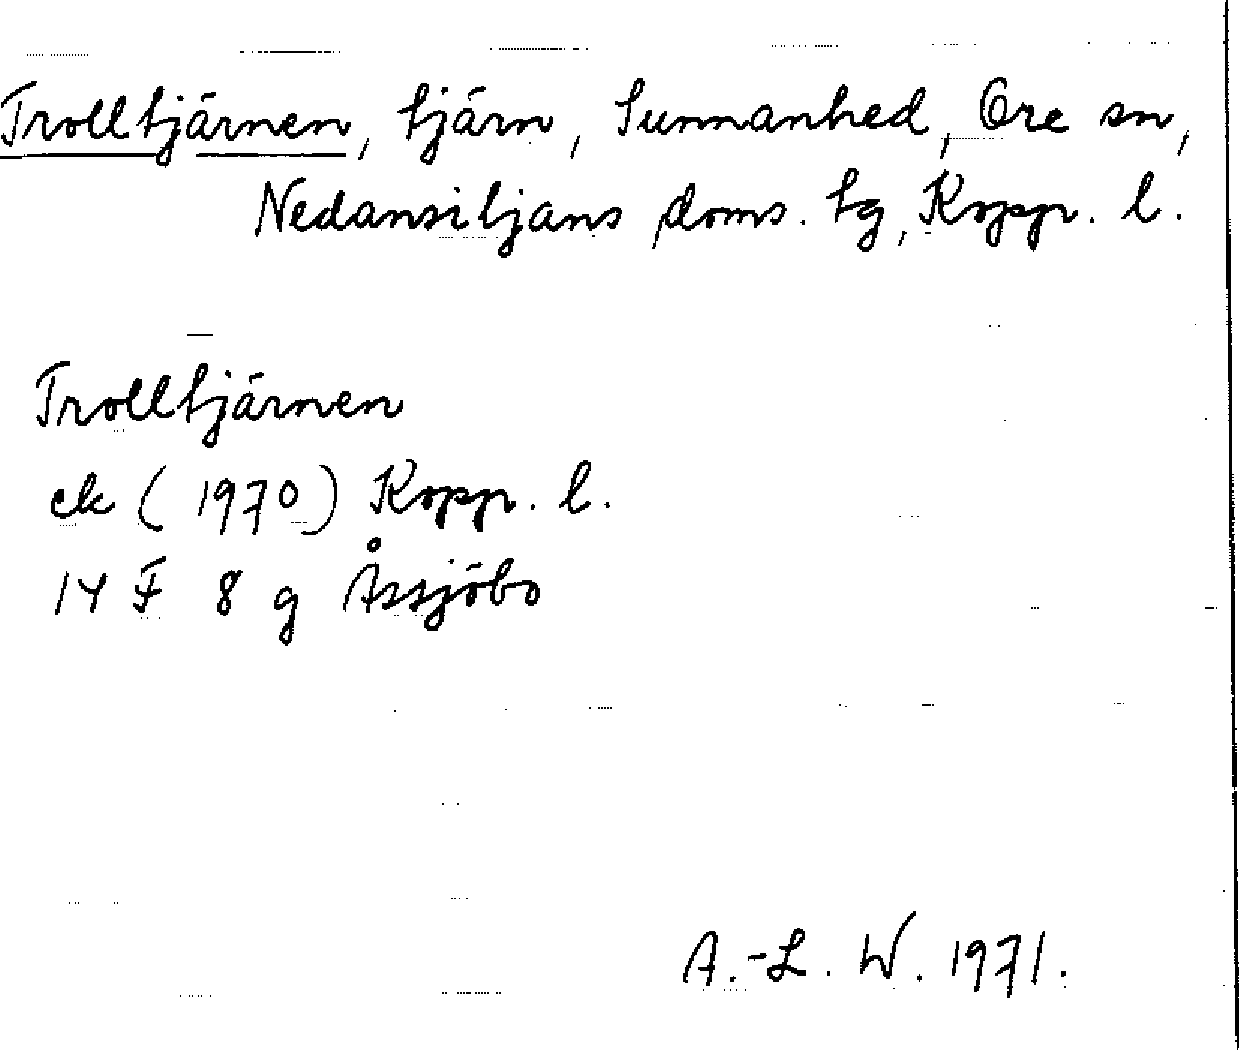 Trolltjärnen, tjärn, Sunnanhed, Ore sn,
Nedansiljans doms. tg, Kopp. l.
Trolltjärnen
ek (1970) Kopp. l.
14 F 8 g Åssjöbo
A.-L. W. 1971.